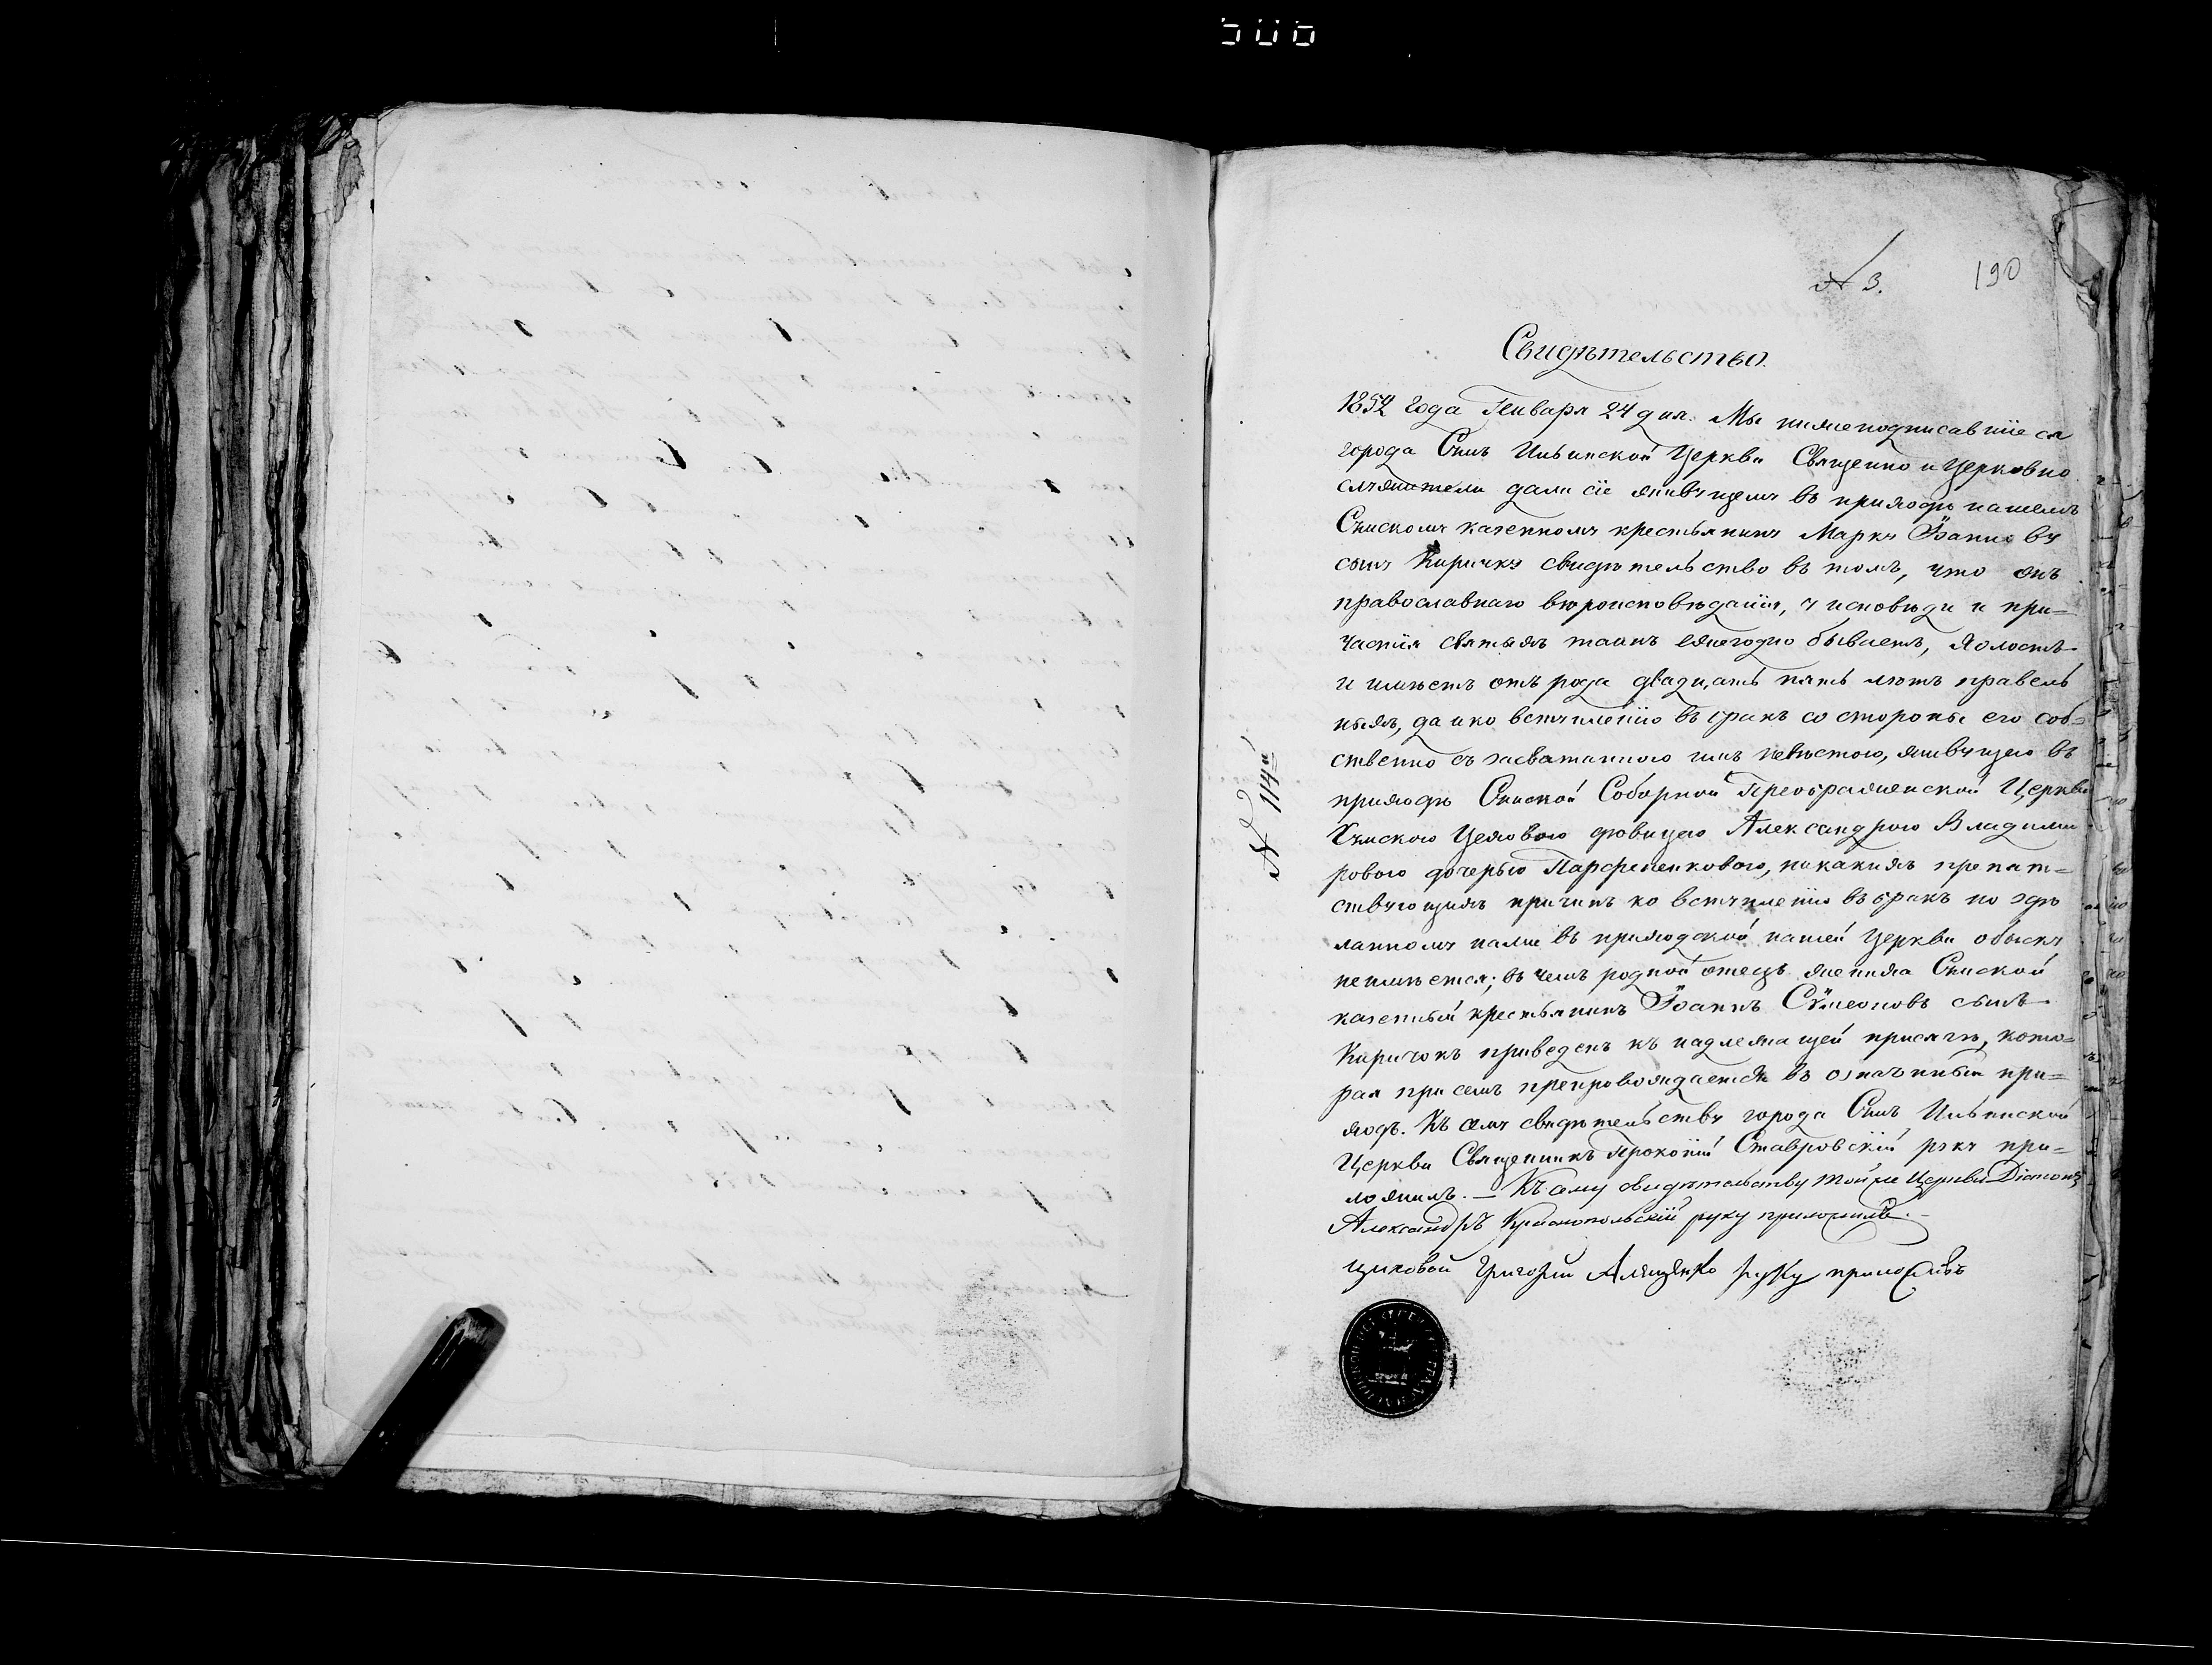 506
№ 3.
190
Свидѣтельство.
1852 года Генваря 24 дня. Мы нижеподписавшіеся
города Сумъ Ильинской Церкви Священно и Церковно
служители дали сіе живущему въ приходѣ нашемъ
Сумскому казенному крестьянину Марку Іоаннову
сыну Киричку свидѣтельство въ томъ, что онъ
православнаго вѣроисповѣданія, у исповѣди и при=
частія святыхъ таинъ ежегодно бываетъ, холостъ
и имѣетъ отъ рода двадцать пять лѣтъ правель
ныхъ, да и ко вступленію въ бракъ со стороны его соб=
ственно съ засватанною имъ невѣстою, живущею въ
приходѣ Сумской Соборной Преображенской Церкви
Сумскою Цеховою дѣвицею Александрою Владими
ровою дочерью Парфененковою, никакихъ препят=
ствующихъ причинъ ко вступленію въ бракъ по здѣ
ланному нами въ приходской нашей Церкви обыску
неимѣется; въ чемъ родной отецъ жениха Сумской
казенный крестьянинъ Іоаннъ Сѵмеоновъ сынъ
Киричокъ приведенъ къ надлежащей присягѣ, кото=
рая при семъ препровождается въ означенный при=
ходъ. Къ сему свидѣтельству города Сумъ Ильинской
Церкви Священникъ Прокопій Ставровскій руку при=
ложилъ. — Къ сему свидѣтельству той же Церкви Діаконъ
Александръ Краснопольскій руку приложилъ. —
Григорій руку приложилъ
№ 114й